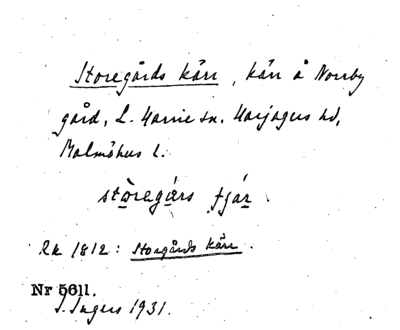 Storegårds kärr, kärr å Norrby
gård, L. Harrie sn. Harjagers hd,
Malmöhus l.
stòregàrs tjár
Rk 1812: Storgårds Kärr.
Nr 5611.
I. Ingers 1931.